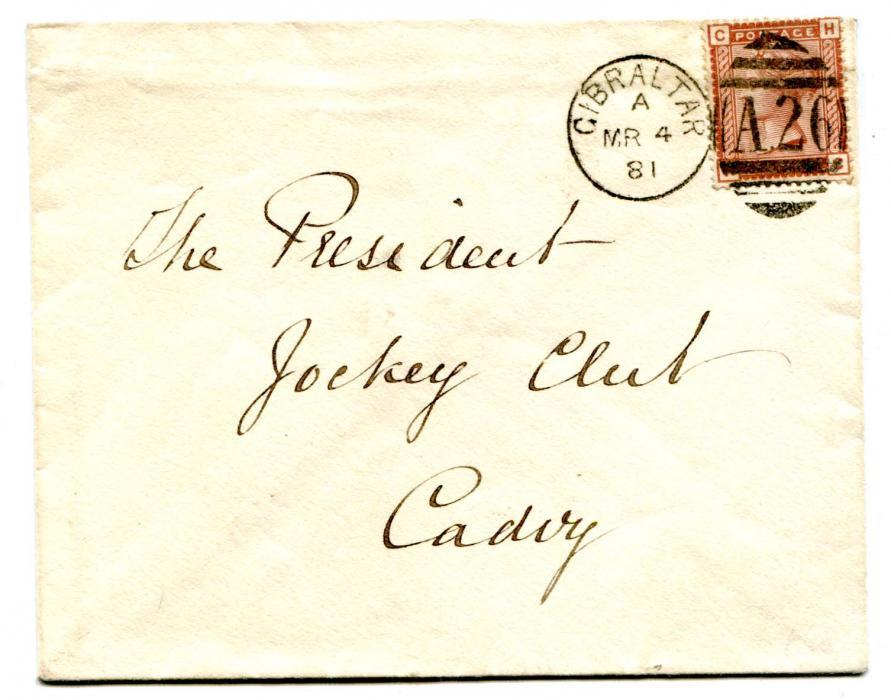 C POSTAGE H
GIBRALTAR
A
MR 4
81
A26
The President
Jockey Club
Cadiz